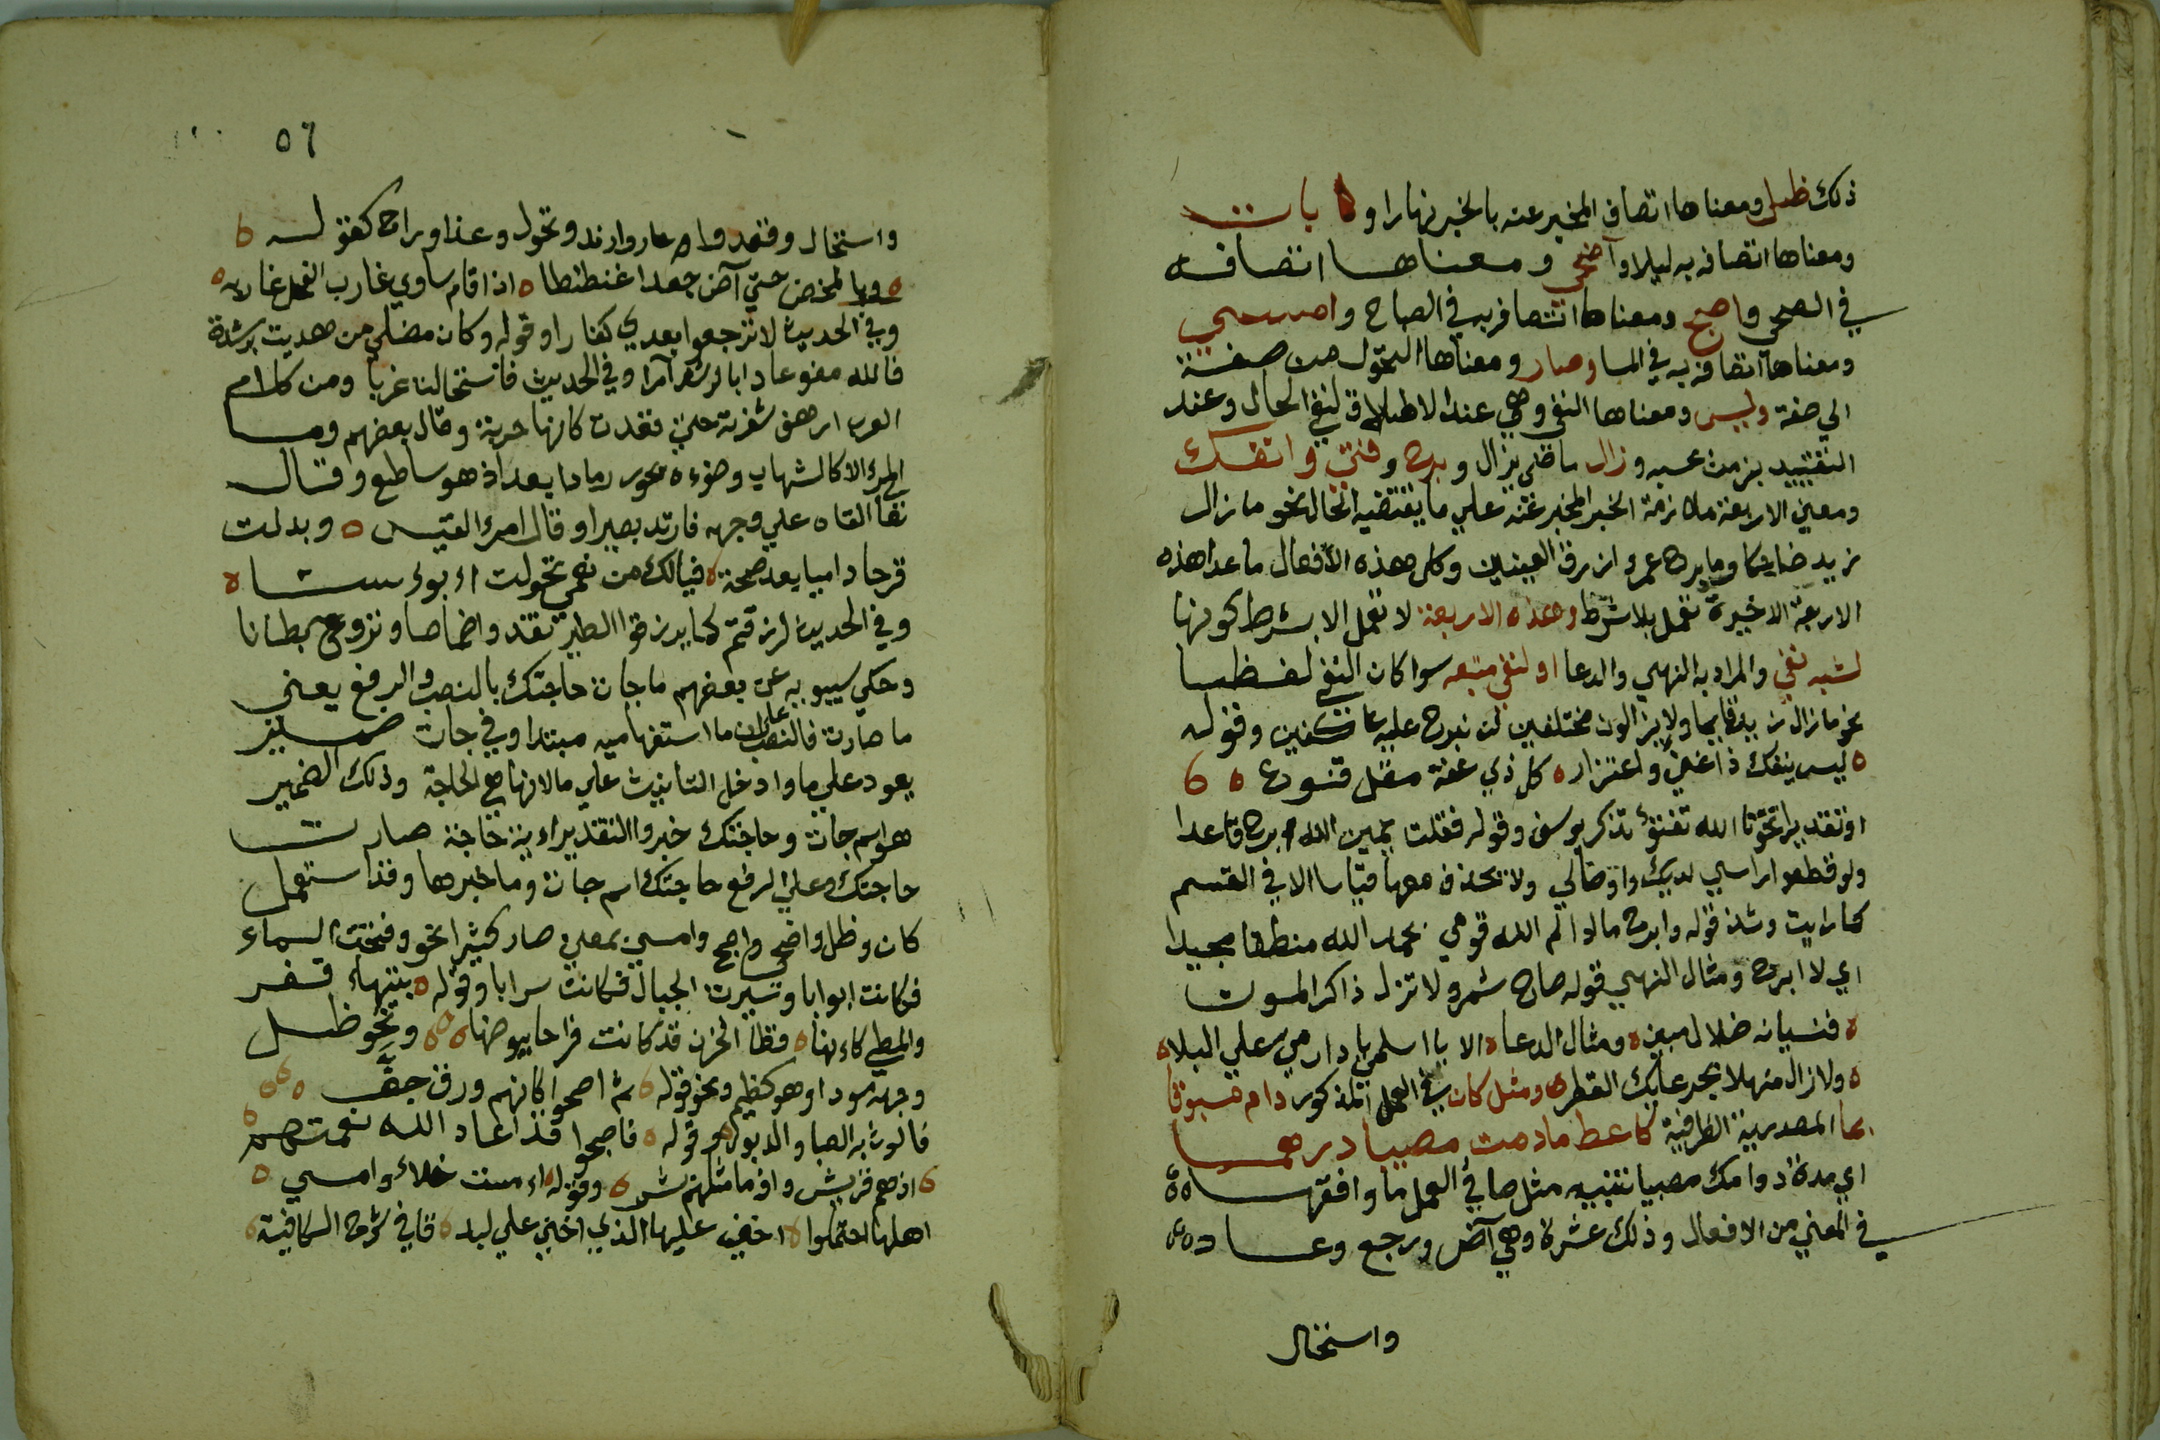 ذلك ظل ومعناها اتصاف المخبر عنه بالخبر نهارا و بات
ومعناها اتصافه به ليلا و أضحى ومعناها اتصافه
في الضحى واصبح ومعناها اتصافه به في الصباح وامسى
ومعناها اتصافه به في المسا وصار ومعناها التحول من صفة
الي صفة وليس ومعناها النفي وهي عند الاطلاق لنفي الحال وعند
التقييد بزمن بحسبه وزال ماضي يزال وبرح وفتئ وانفك
ومعني الاربعة ملازمة الخبر المخبر عنه علي ما يقتضيه الحال نحو ما زال
زيد ضاحكا وما برح عمرو ازرق العينين وكل هذه الأفعال ما عدا هذه
الاربعة الاخيرة تعمل بلا شرط وهذه الاربعة لا تعمل الا بشرط كونها
لشبه نفي والمراد به النهي والدعا او لنفي متبعه سوا كان النفي لفظيا
نحو ما زال زيد قايما ولا يزالون مختلفين لن نبرح عليه عاكفين وقوله
ليس ينفك ذا غني واعتزاز كل ذي عفة مقل قنوع
او تقديرا نحو تا الله تفتؤ تذكر يوسف وقوله فقلت يمين الله ابرح قاعدا
ولو قطعوا راسي لديك واوصالي ولا يحذف معها قياسا الا في القسم
كما رايت وشذ قوله وابرح ما ادام الله قومي بحمد الله منطقا مجيدا
اي لا ابرح ومثال النهي قوله صاح شمر ولا تزل ذاكر الموت
فنسيانه ضلال مبين ومثال الدعا الا يا اسلمي يا دار مي علي البلا
ولا زال منهلا بجرعايك القطر ومثل كان في العمل المذكور دام مسبوقا
بما المصدرية الظرفية كاعط ما دمت مصيبا درهما
اي مدة دوامك مصيبا تنبيه مثل صار في العمل ما وافقها
في المعني من الافعال وذلك عشرة وهي آض ورجع وعاد
واستحال
٥٦
واستحال وقعد وحار وارتد وتحول وغدا وراح كقوله
وبالمخض حتي آض جعدا عنطنطا اذا قام ساوي غارب الفحل غاربه
وفي الحديث لا ترجعوا بعدي كفارا وقوله وكان مضلي من هديت برشده
فالله مغو عاد بالرشد آمرا وفي الحديث فاستحالت غربا ومن كلام
العرب ارهف شفرته حتي قعدت كانها حربة وقال بعضهم وما
المرء الا كالشهاب وضوءه يحور رمادا بعد اذ هو ساطع وقال
تعا القاه علي وجهه فارتد بصيرا وقال امرؤ القيس وبدلت
قرحا داميا بعد صحة فيالك من نعمي تحولت ابؤسا
وفي الحديث لرزقتم كما يرزق الطير تغدو خماصا وتروح بطانا
وحكي سيبويه عن بعضهم ما جات حاجتك بالنصب والرفع يعني
ما صارت فالنصب علي ان ما استفهامية مبتدا وفي جات ضمير
يعود علي ما وادخل التانيث علي ما لانها هي الحاجة وذلك الضمير
هو اسم جات وحاجتك خبر والتقدير اية حاجة صارت
حاجتك وعلي الرفع حاجتك اسم جات وما خبرها وقد استعمل
كان وظل واضحي واصبح وامسي بمعني صار كثيرا نحو وفتحت السماء
فكانت ابوابا وسيرت الجبال فكانت سرابا وقوله بتيهاء قفر
والمطي كانها قطا الحزن قد كانت فراخا بيوضها ونحو ظل
وجهه مسودا وهو كظيم ونحو قوله ثم اضحوا كانهم ورق جف
فالوت به الصبا والدبور وقوله فاصبحوا قد اعاد الله نعمتهم
اذ هم قريش واذ ما مثلهم بشر وقوله امست خلاء وامسي
اهلها احتملوا اخني عليها الذي اخني علي لبد قال في شرح الكافية